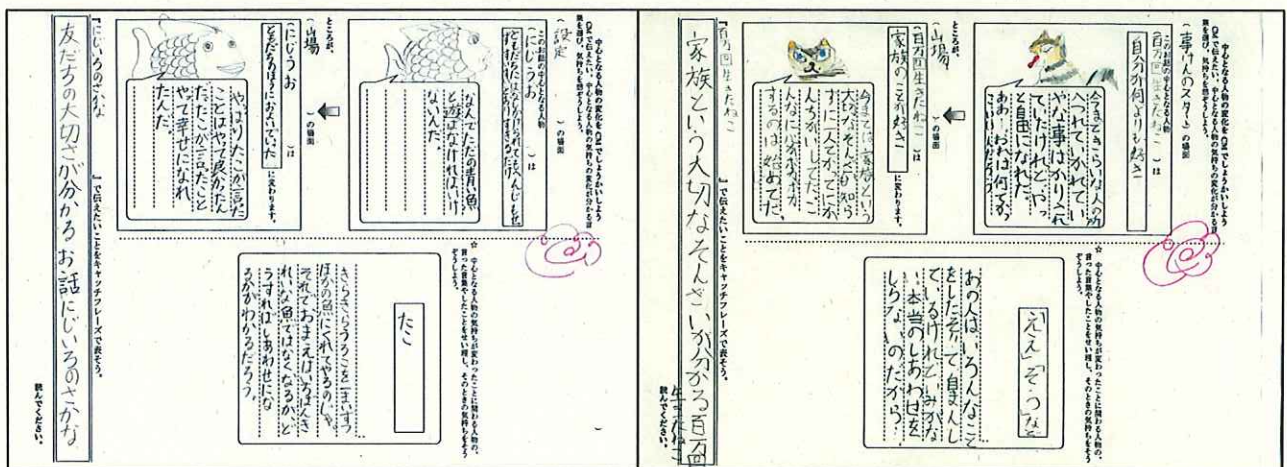 中心となる人物の変化をCMでしょうかいしよう
CMで伝えたい、中心となる人物の気持ちの変化が分かる言
葉を選び、気持ちを想ぞうしよう。
このお話の中心となる人物
(百万回生きたねこ)は
自分が何よりも好き
(事けんのスタート)の場面
今まできらいな人の所
へつれていかれてい
やな事ばかりされ
ていたけれど、やっ
と自由になれた。
ああ、おれは何てか
ところが、
(百万回生きたねこ)は
家族のことが好き
に変わります。
(山場)の場面
今までは、家族という
大切なそんざいを知ら
ずに一人でかってにか
するのは始めてだ。
☆ 中心となる人物の気持ちが変わったことに関わる人物の、
言った言葉やしたことをせい理し、そのときの気持ちをそう
ぞうしよう。
「ええ」「そう」など
あの人は、いろんなこと
をしたぞって自まんし
ているけれどいみがな
い、本当のしあわせを
しらないのだから。
『百万回生きたねこ』で伝えたいことをキャッチフレーズで表そう。
家族という大切なそんざいが分かる百万回
生きたねこ
読んでください。
中心となる人物の変化をCMでしょうかいしよう
CMで伝えたい、中心となる人物の気持ちの変化が分かる言
葉を選び、気持ちを想ぞうしよう。
このお話の中心となる人物
(にじうお)は
(設定)の場面
なんでただの青い魚
と遊ばなければいけ
ないんだ。
ところが、
(にじうお)は
ともだちのほうにおよいでいった
に変わります。
(山場)の場面
やっぱりたこが言った
ことはやって良かったん
だ。たこが言ったこと
やって幸せになれ
たんだ。
☆ 中心となる人物の気持ちが変わったことに関わる人物の、
言った言葉やしたことをせい理し、そのときの気持ちをそう
ぞうしよう。
たこ
きらきらうろこを一まいずつ
ほかの魚にくれてやるのじゃ
それでおまえはいちばんき
れいな魚ではなくなるが、ど
うすればしあわせにな
るかがわかるだろう。
『にじいろのさかな』で伝えたいことをキャッチフレーズで表そう。
友だちの大切さが分かるお話にじいろのさかな
読んでください。